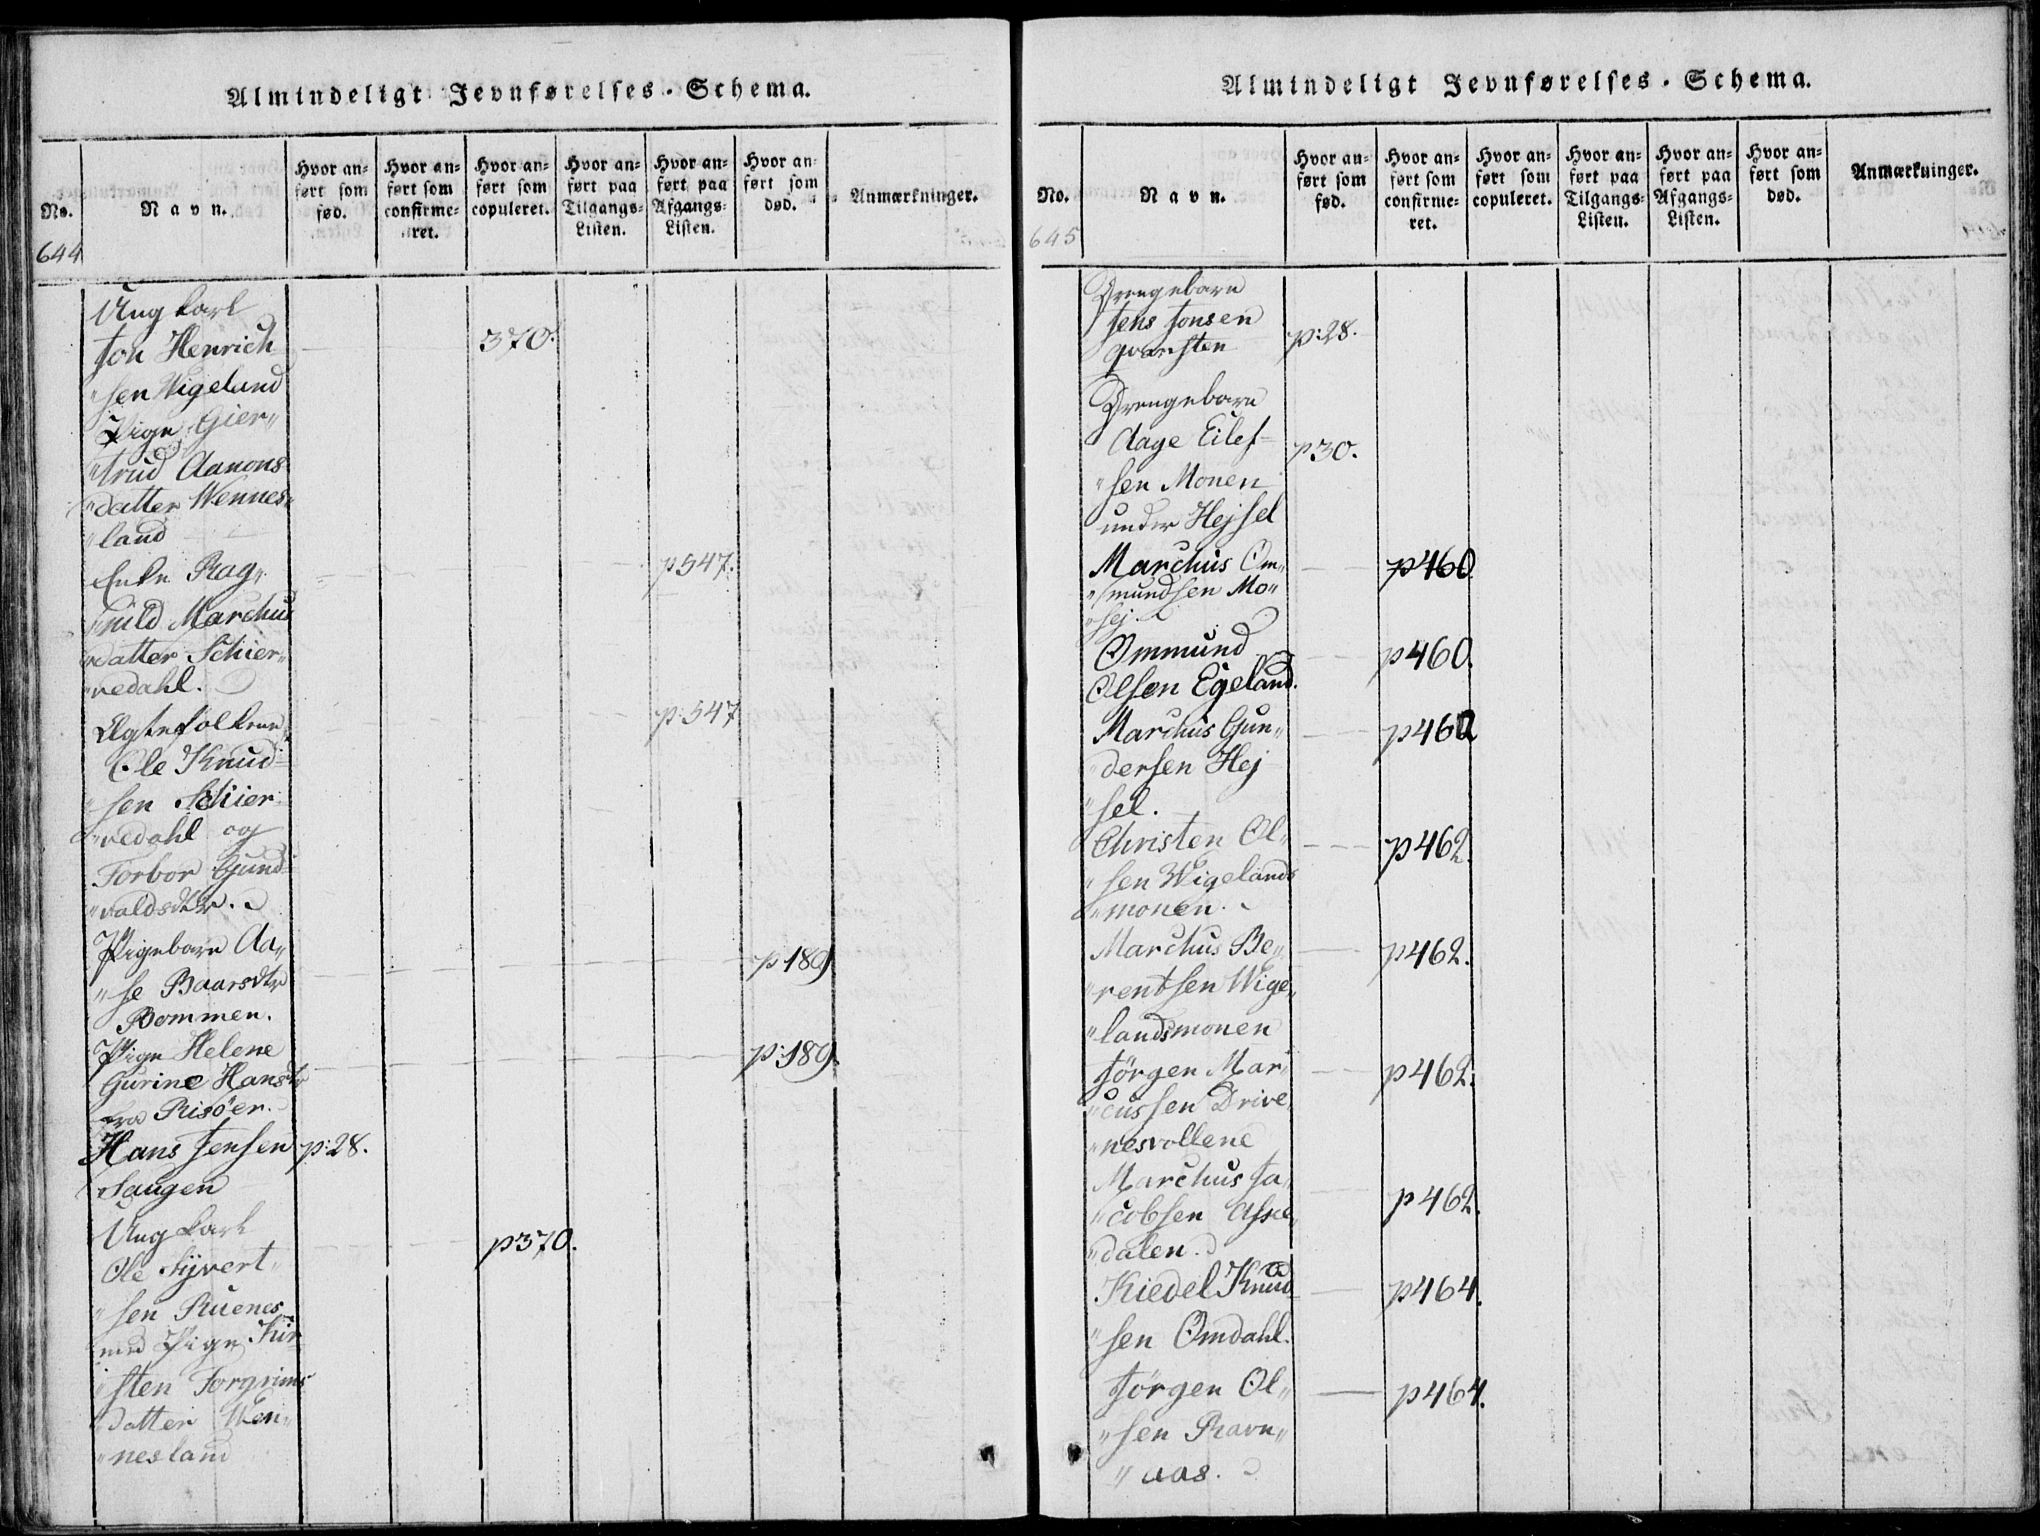 Almindeligt Jevnførelses-Schema.
No.
Navn.
Hvor an-
ført som
fød.
Hvor an-
ført som
confirme-
ret.
Hvor an-
ført som
copuleret.
Hvor an-
ført paa
Tilgangs-
Listen.
Hvor an-
ført paa
Afgangs-
Listen.
Hvor an-
ført som
død.
Anmærkninger.
644
Ung karl
Jon Henrich 370.
"sen Wigeland
Pige Gier"
"trud Aanons
"datter Wennes"
"land
Enke Rag" p547.
"nild Marchus
"datter Schier"
"redahl.
Ægtefolkene p:547
Ole Knud
"sen Schier
"redahl og
Torbor Gund
"valdsdtr.
Pigebarn Aa" p189
"se Baarsdtr
Bommen.
Pige Helene p:189.
Gurine Hansdtr
fra Risöer.
Hans Jensen p:28.
Saugen
Ung karl
Ole Syvert" p370.
"sen Ruenes
med Pige Kir
"sten Torgrims
datter Wen"
"nesland
Almindeligt Jevnførelses-Schema.
No.
Navn.
Hvor an-
ført som
fød.
Hvor an-
ført som
confirme-
ret.
Hvor an-
ført som
copuleret.
Hvor an-
ført paa
Tilgangs-
Listen.
Hvor an-
ført paa
Afgangs-
Listen.
Hvor an-
ført som
død.
Anmærkninger.
645
Drengebarn
Jens Jonsen p:28.
Qvarsten
Drengebarn
Aage Eilef= p30.
"sen Monen
under Hejsel
Marchus Om" p460
"mundsen Mo"
"sej.
Ommund p460.
Olsen Egeland.
Marchus Gun" p462
"dersen Hej
"sel.
Christen Ol" p462.
"sen Wigelands
"monen.
Marchus Be" p462.
"rentsen Wige"
"landsmonen
Jörgen Mar p462.
"cussen Drive"
"nesvollene
Marchus Ja" p462.
"cobsen Aspe"
"dalen.
Kiedel Knud p464.
"sen Omdahl.
Jörgen Ol" p464.
"sen Ravn"
"aas.